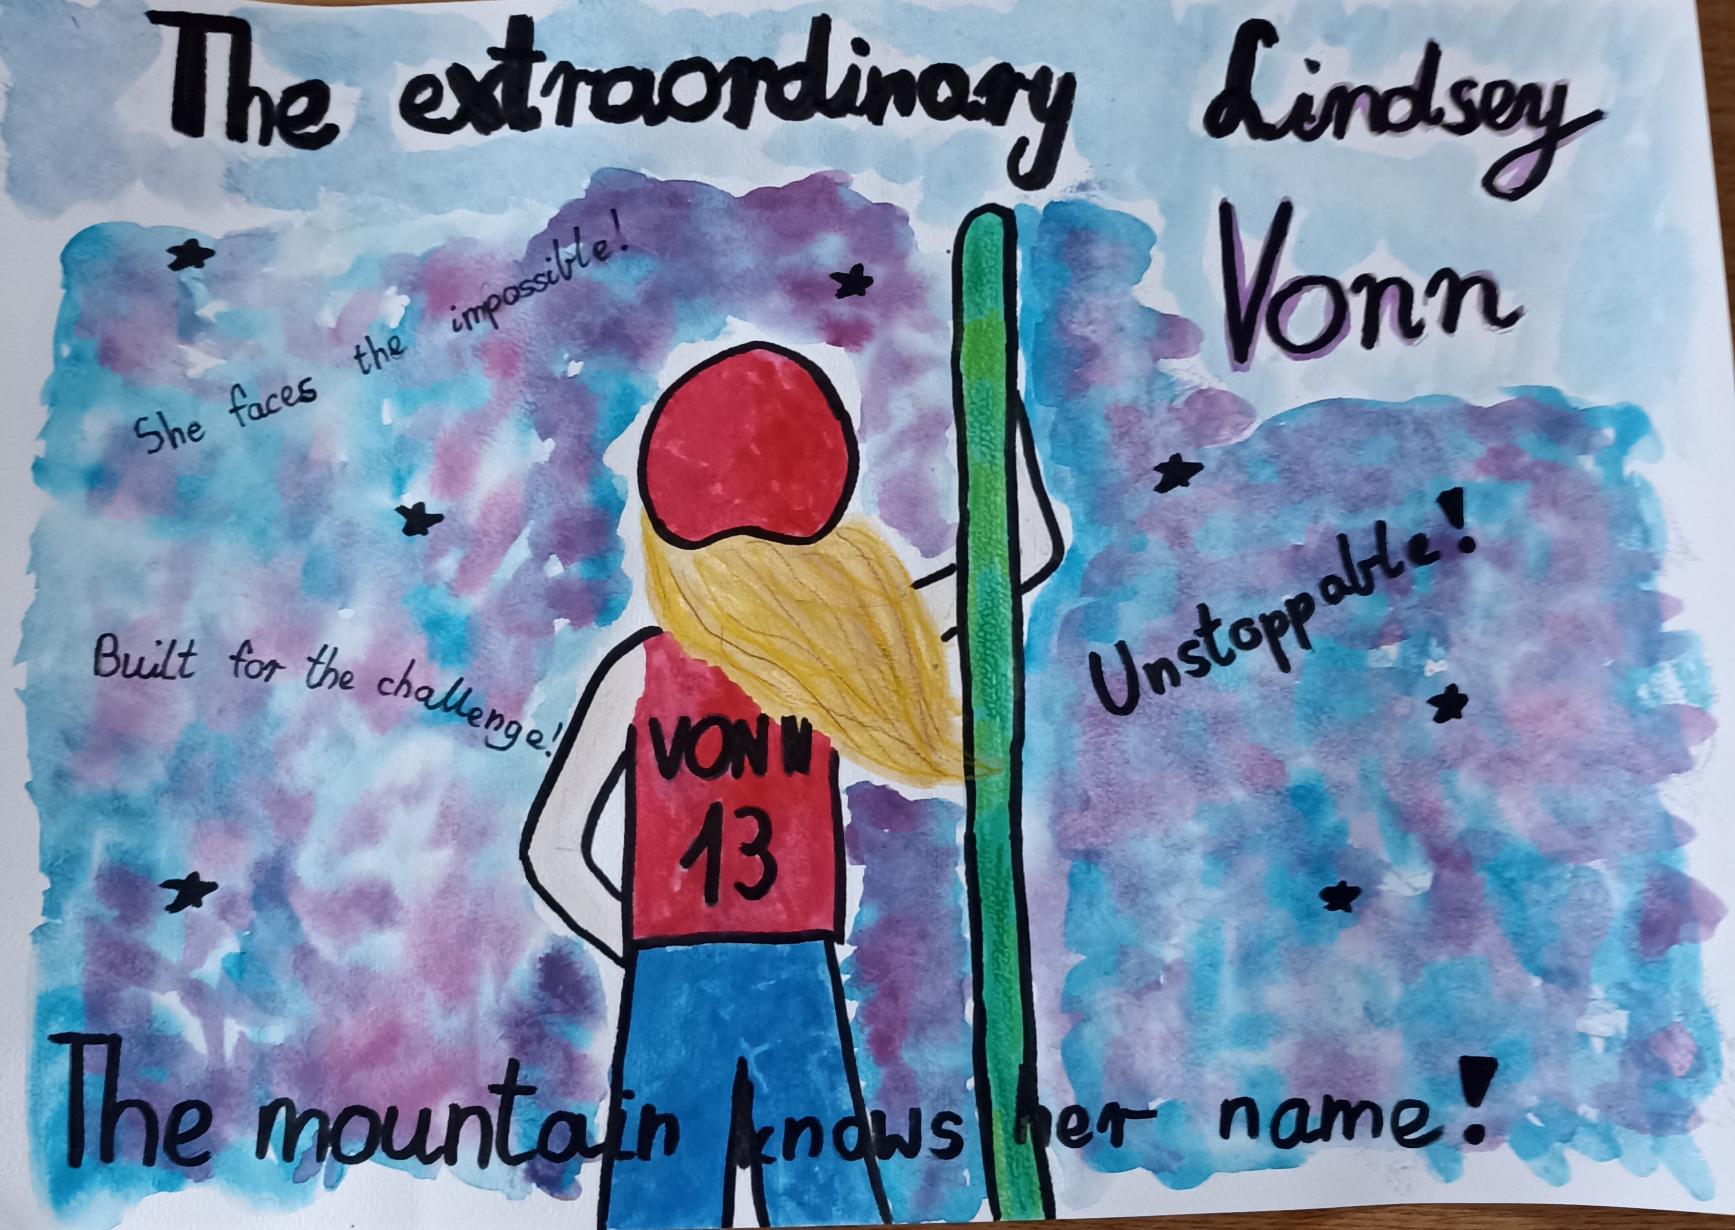 The extraordinary Lindsey
Vonn
She faces the impossible!
Built for the challenge!
Unstoppable!
VONN
13
The mountain knows her name!